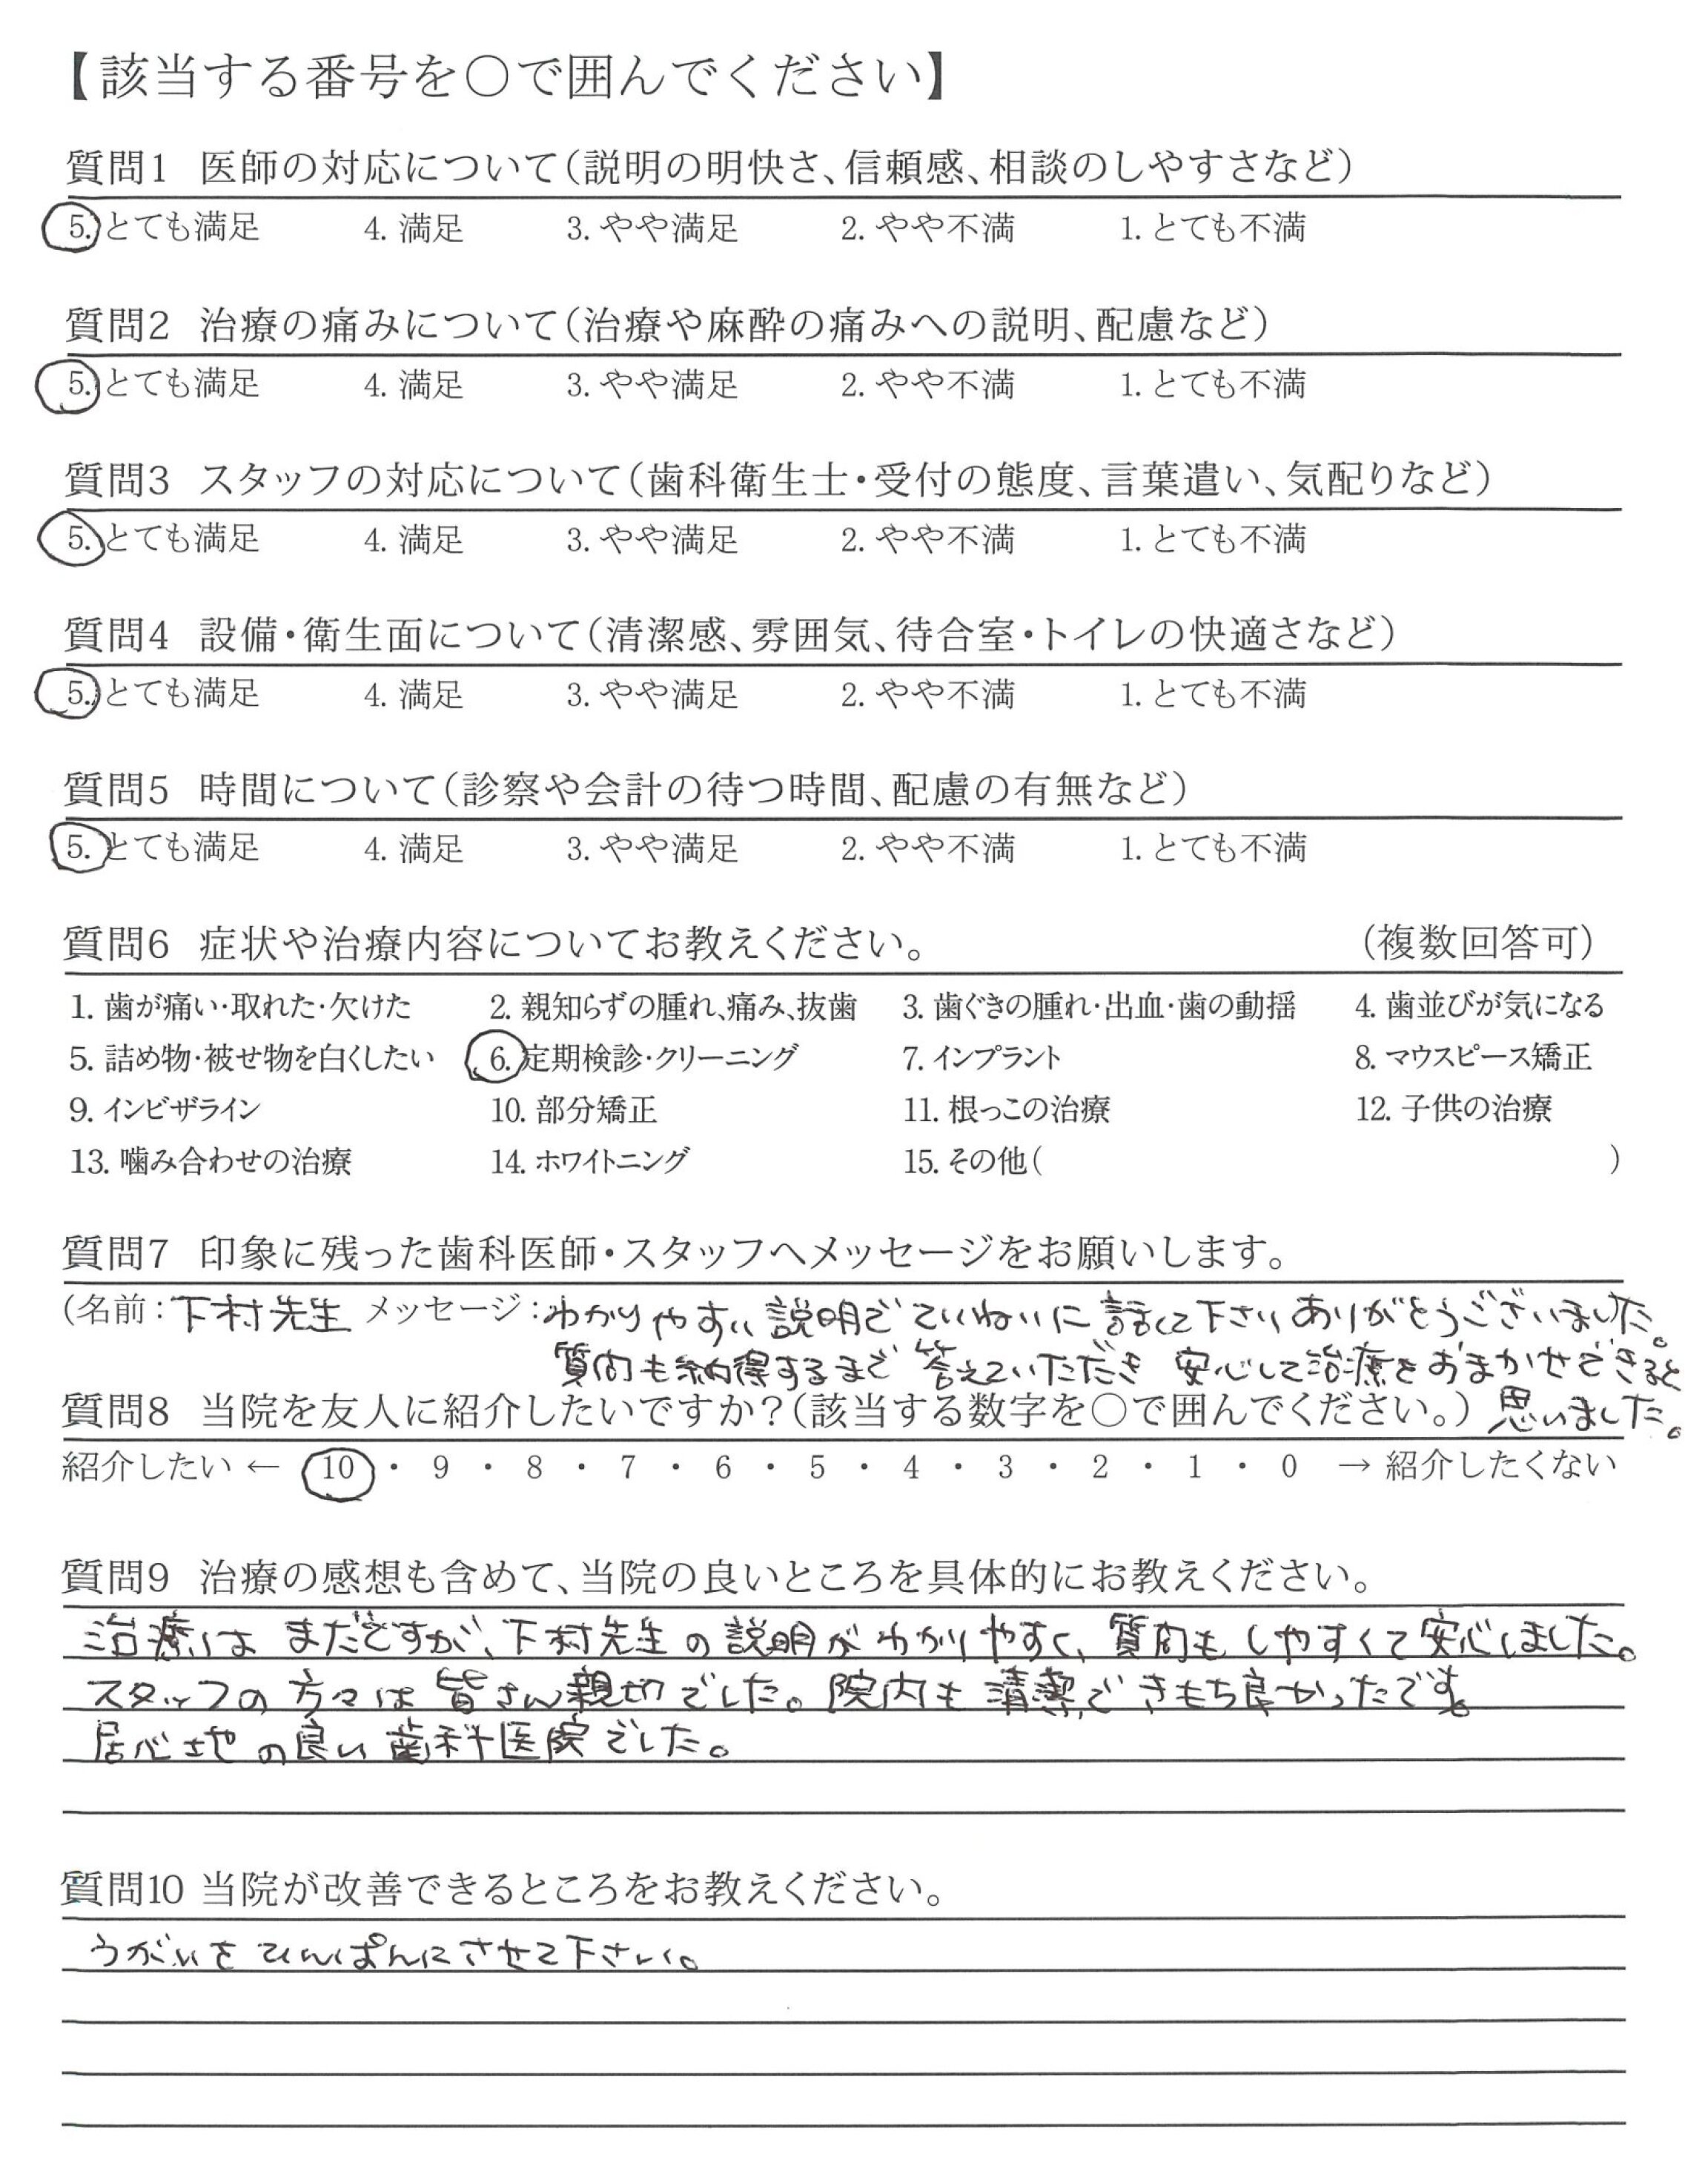 【該当する番号を○で囲んでください】
質問1 医師の対応について(説明の明快さ、信頼感、相談のしやすさなど)
5. とても満足 4. 満足 3. やや満足 2. やや不満 1. とても不満
質問2 治療の痛みについて(治療や麻酔の痛みへの説明、配慮など)
5. とても満足 4. 満足 3. やや満足 2. やや不満 1. とても不満
質問3 スタッフの対応について(歯科衛生士・受付の態度、言葉遣い、気配りなど)
5. とても満足 4. 満足 3. やや満足 2. やや不満 1. とても不満
質問4 設備・衛生面について(清潔感、雰囲気、待合室・トイレの快適さなど)
5. とても満足 4. 満足 3. やや満足 2. やや不満 1. とても不満
質問5 時間について(診察や会計の待つ時間、配慮の有無など)
5. とても満足 4. 満足 3. やや満足 2. やや不満 1. とても不満
質問6 症状や治療内容についてお教えください。 (複数回答可)
1. 歯が痛い・取れた・欠けた 2. 親知らずの腫れ、痛み、抜歯 3. 歯ぐきの腫れ・出血・歯の動揺 4. 歯並びが気になる
5. 詰め物・被せ物を白くしたい 6. 定期検診・クリーニング 7. インプラント 8. マウスピース矯正
9. インビザライン 10. 部分矯正 11. 根っこの治療 12. 子供の治療
13. 噛み合わせの治療 14. ホワイトニング 15. その他( )
質問7 印象に残った歯科医師・スタッフへメッセージをお願いします。
(名前:下村先生 メッセージ:わかりやすい説明でていねいに話して下さりありがとうございました。
質問も納得するまで答えていただき 安心して治療をおまかせできると
思いました。
質問8 当院を友人に紹介したいですか?(該当する数字を○で囲んでください。)
紹介したい ← 10 ・ 9 ・ 8 ・ 7 ・ 6 ・ 5 ・ 4 ・ 3 ・ 2 ・ 1 ・ 0 → 紹介したくない
質問9 治療の感想も含めて、当院の良いところを具体的にお教えください。
治療はまだですが、下村先生の説明がわかりやすく、質問もしやすくて安心しました。
スタッフの方々は皆さん親切でした。院内も清潔できもち良かったです。
居心地の良い歯科医院でした。
質問10 当院が改善できるところをお教えください。
うがいをひんぱんにさせて下さい。